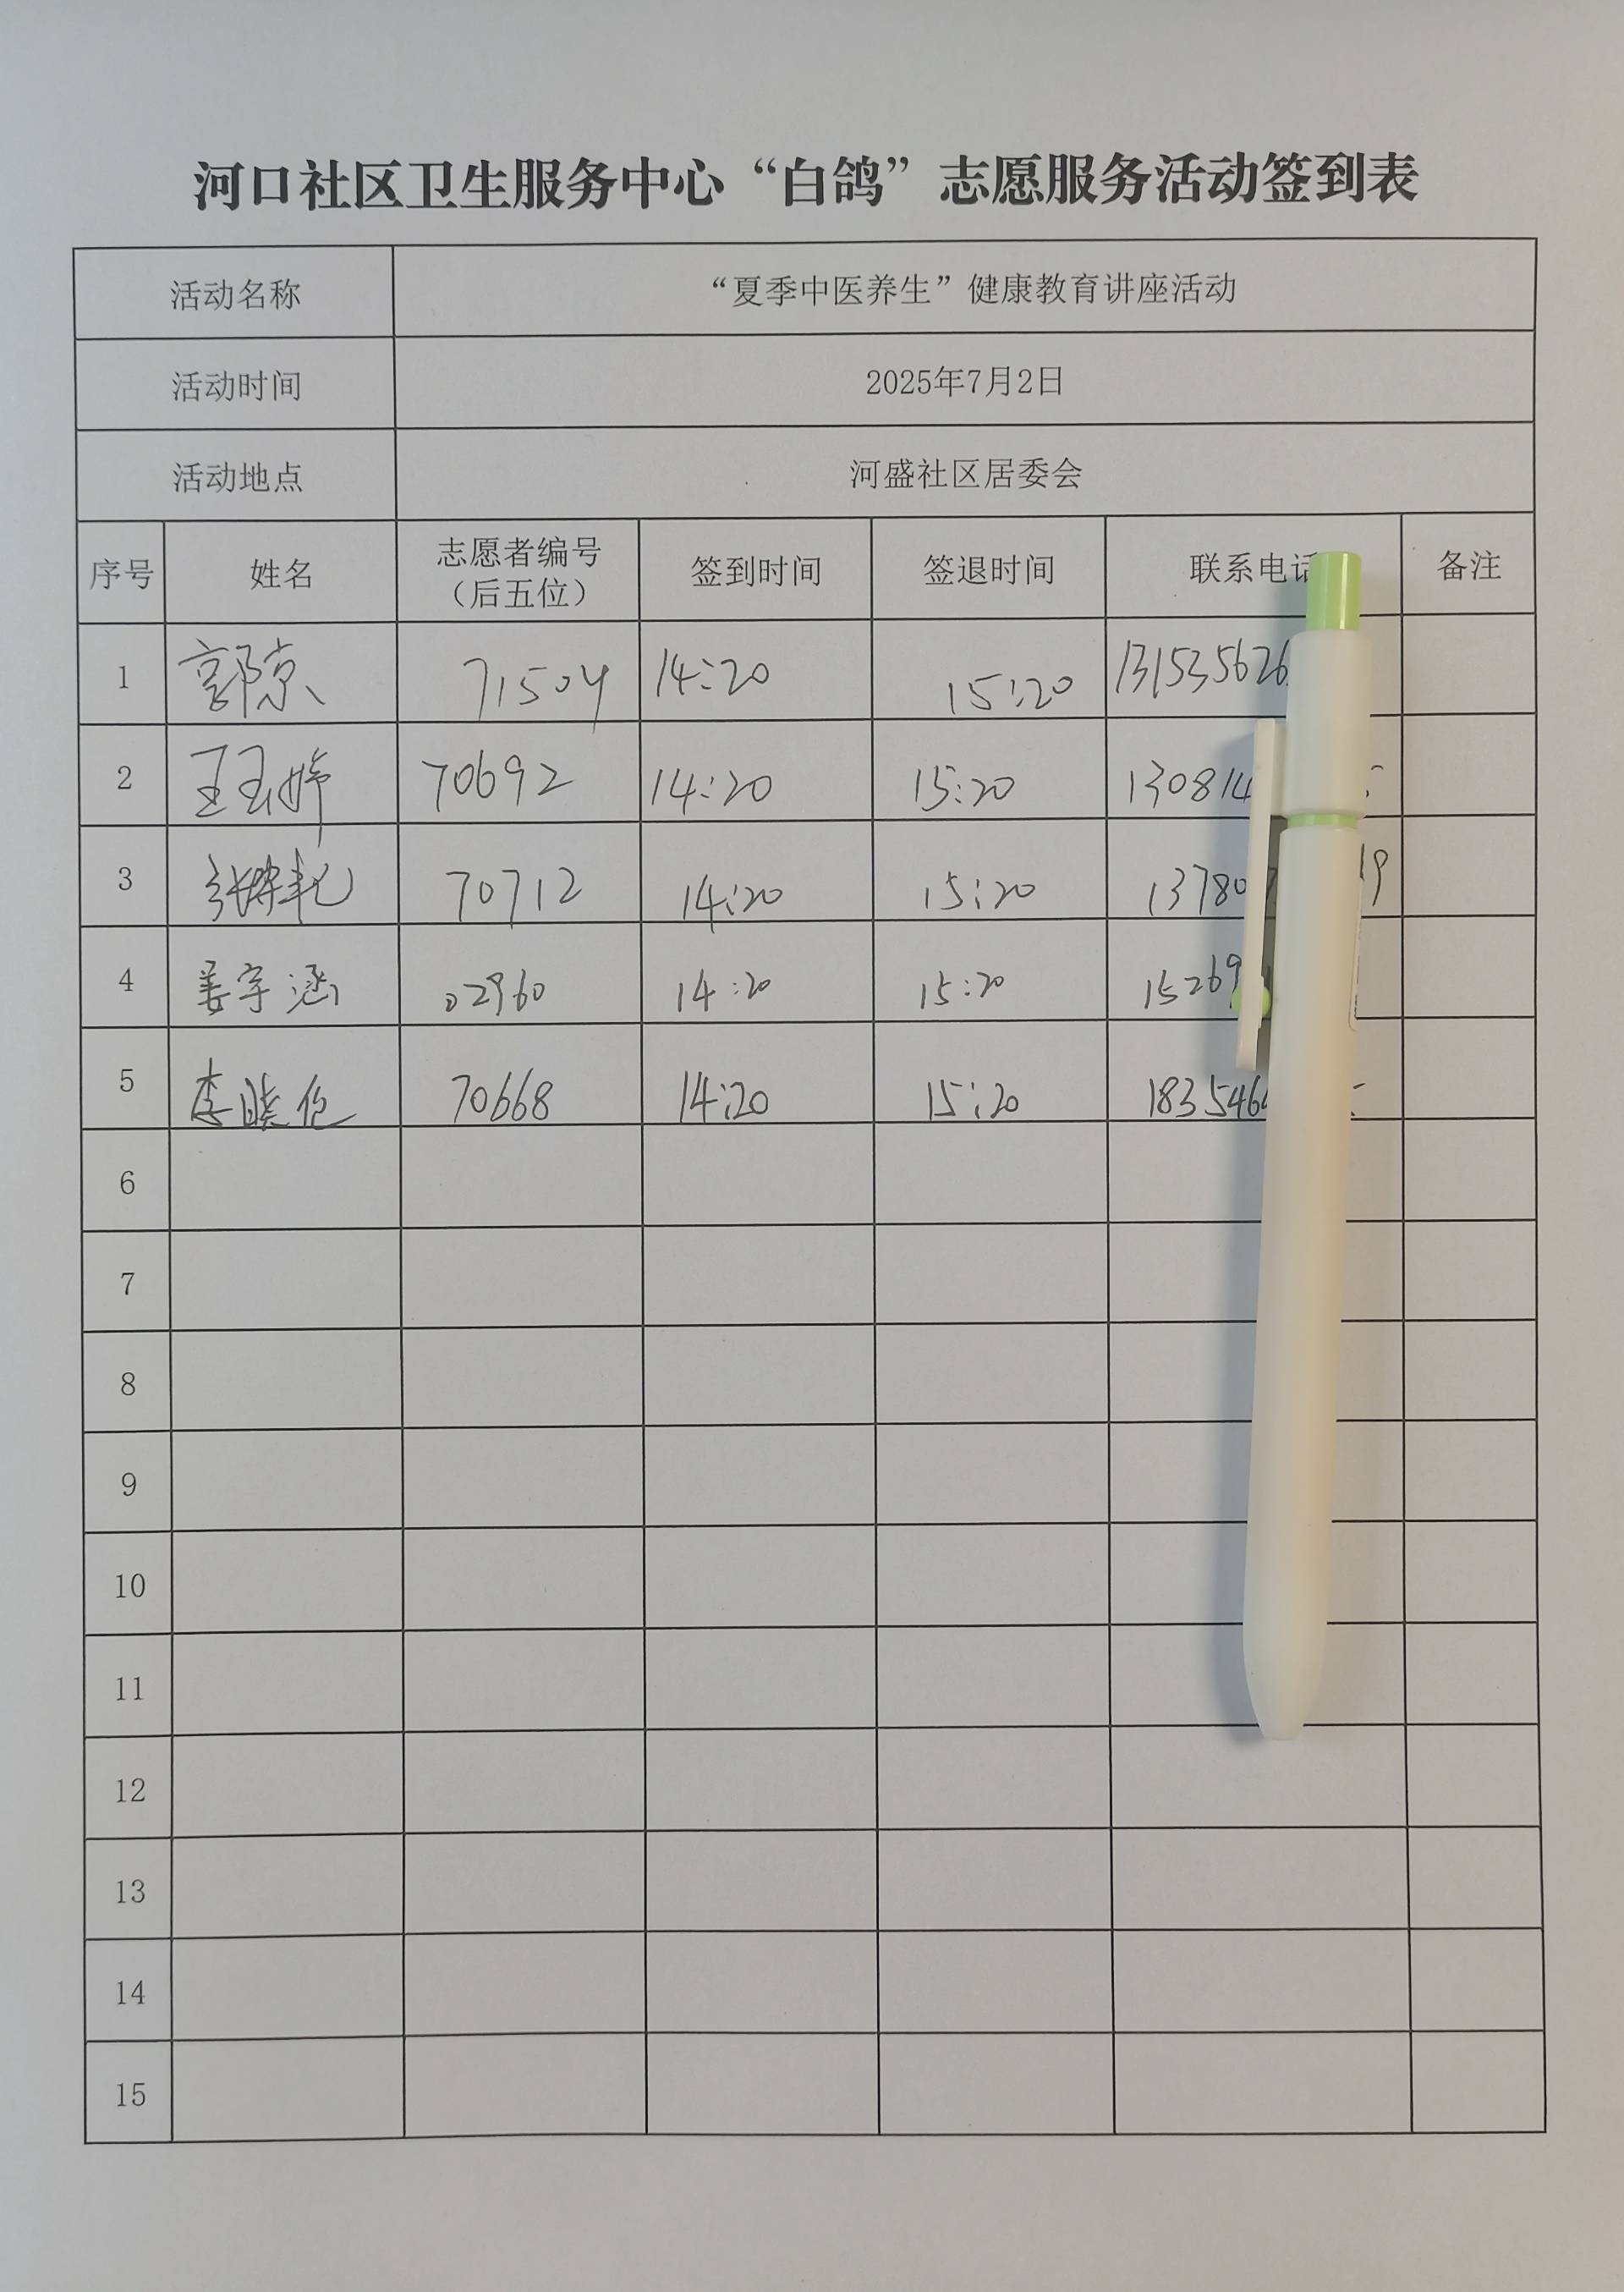 河口社区卫生服务中心“白鸽”志愿服务活动签到表
活动名称 “夏季中医养生”健康教育讲座活动
活动时间 2025年7月2日
活动地点 河盛社区居委会
序号 姓名 志愿者编号（后五位） 签到时间 签退时间 联系电话 备注
1 郭京 71504 14:20 15:20 131535626
2 王玉婷 70692 14:20 15:20 130814
3 张 70712 14:20 15:20 13780 19
4 姜宇涵 02960 14:20 15:20 15269
5 李晓 70668 14:20 15:20 183546
6
7
8
9
10
11
12
13
14
15